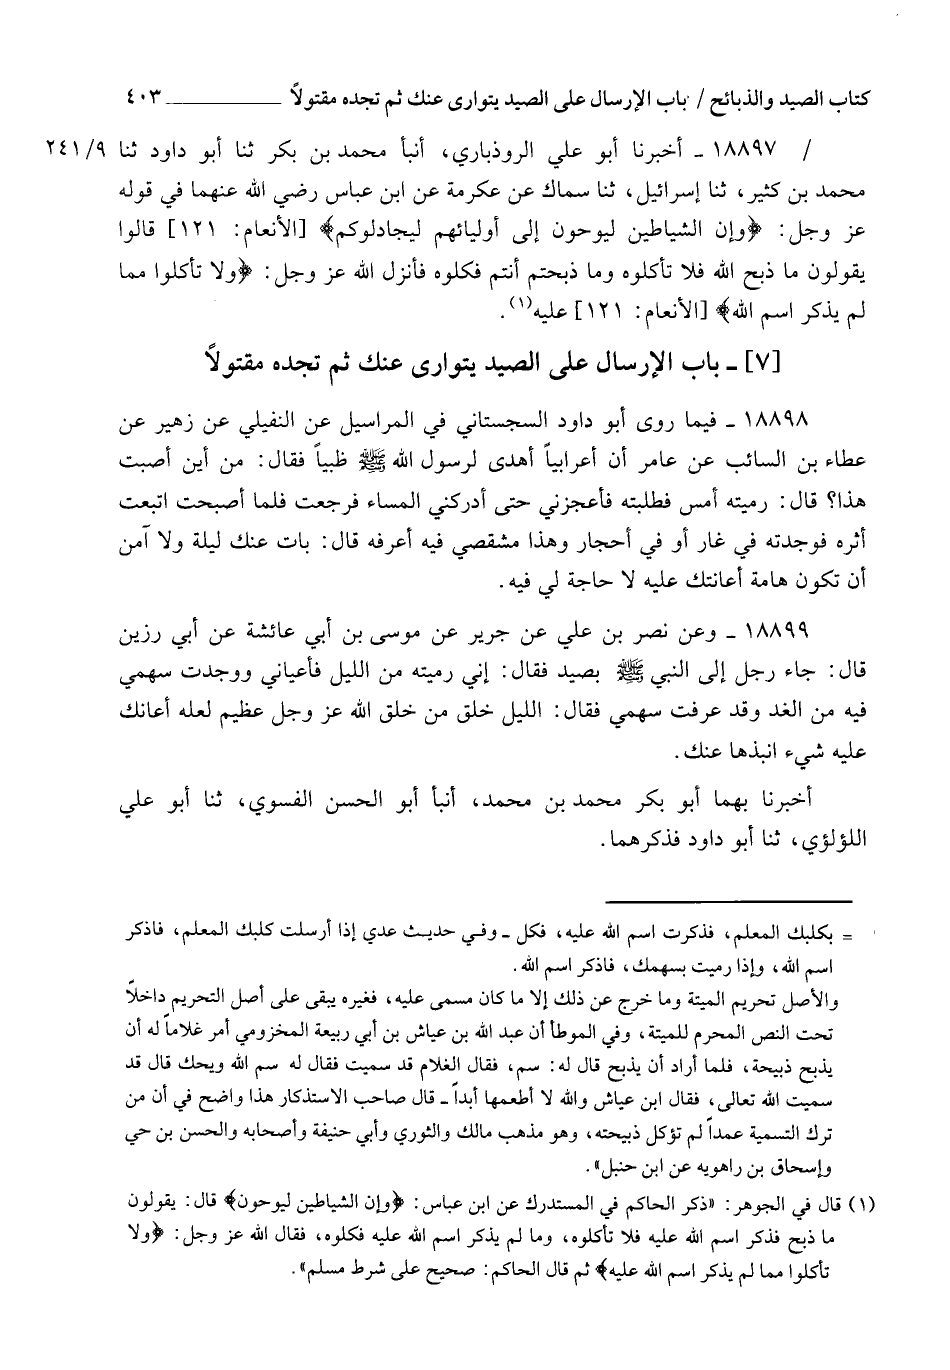 كتاب الصيد والذبائح / باب الإرسال على الصيد يتوارى عنك ثم تجده مقتولاً ــــــــــــــــ ٤٠٣
/ ١٨٨٩٧ ـ أخبرنا أبو علي الروذباري، أنبأ محمد بن بكر ثنا أبو داود ثنا ٢٤١/٩
محمد بن كثير، ثنا إسرائيل، ثنا سماك عن عكرمة عن ابن عباس رضي الله عنهما في قوله
عز وجل: ﴿وإن الشياطين ليوحون إلى أوليائهم ليجادلوكم﴾ [الأنعام: ١٢١] قالوا
يقولون ما ذبح الله فلا تأكلوه وما ذبحتم أنتم فكلوه فأنزل الله عز وجل: ﴿ولا تأكلوا مما
لم يذكر اسم الله﴾ [الأنعام: ١٢١] عليه(١).
[٧] ـ باب الإرسال على الصيد يتوارى عنك ثم تجده مقتولاً
١٨٨٩٨ ـ فيما روى أبو داود السجستاني في المراسيل عن النفيلي عن زهير عن
عطاء بن السائب عن عامر أن أعرابياً أهدى لرسول الله ﷺ ظبياً فقال: من أين أصبت
هذا؟ قال: رميته أمس فطلبته فأعجزني حتى أدركني المساء فرجعت فلما أصبحت اتبعت
أثره فوجدته في غار أو في أحجار وهذا مشقصي فيه أعرفه قال: بات عنك ليلة ولا آمن
أن تكون هامة أعانتك عليه لا حاجة لي فيه.
١٨٨٩٩ ـ وعن نصر بن علي عن جرير عن موسى بن أبي عائشة عن أبي رزين
قال: جاء رجل إلى النبي ﷺ بصيد فقال: إني رميته من الليل فأعياني ووجدت سهمي
فيه من الغد وقد عرفت سهمي فقال: الليل خلق من خلق الله عز وجل عظيم لعله أعانك
عليه شيء انبذها عنك.
أخبرنا بهما أبو بكر محمد بن محمد، أنبأ أبو الحسن الفسوي، ثنا أبو علي
اللؤلؤي، ثنا أبو داود فذكرهما.
= بكلبك المعلم، فذكرت اسم الله عليه، فكل ـ وفي حديث عدي إذا أرسلت كلبك المعلم، فاذكر
اسم الله، وإذا رميت بسهمك، فاذكر اسم الله.
والأصل تحريم الميتة وما خرج عن ذلك إلا ما كان مسمى عليه، فغيره يبقى على أصل التحريم داخلاً
تحت النص المحرم للميتة، وفي الموطأ أن عبد الله بن عياش بن أبي ربيعة المخزومي أمر غلاماً له أن
يذبح ذبيحة، فلما أراد أن يذبح قال له: سم، فقال الغلام قد سميت فقال له سم الله ويحك قال قد
سميت الله تعالى، فقال ابن عياش والله لا أطعمها أبداً ـ قال صاحب الاستذكار هذا واضح في أن من
ترك التسمية عمداً لم تؤكل ذبيحته، وهو مذهب مالك والثوري وأبي حنيفة وأصحابه والحسن بن حي
وإسحاق بن راهويه عن ابن حنبل».
(١) قال في الجوهر: «ذكر الحاكم في المستدرك عن ابن عباس: ﴿وإن الشياطين ليوحون﴾ قال: يقولون
ما ذبح فذكر اسم الله عليه فلا تأكلوه، وما لم يذكر اسم الله عليه فكلوه، فقال الله عز وجل: ﴿ولا
تأكلوا مما لم يذكر اسم الله عليه﴾ ثم قال الحاكم: صحيح على شرط مسلم».